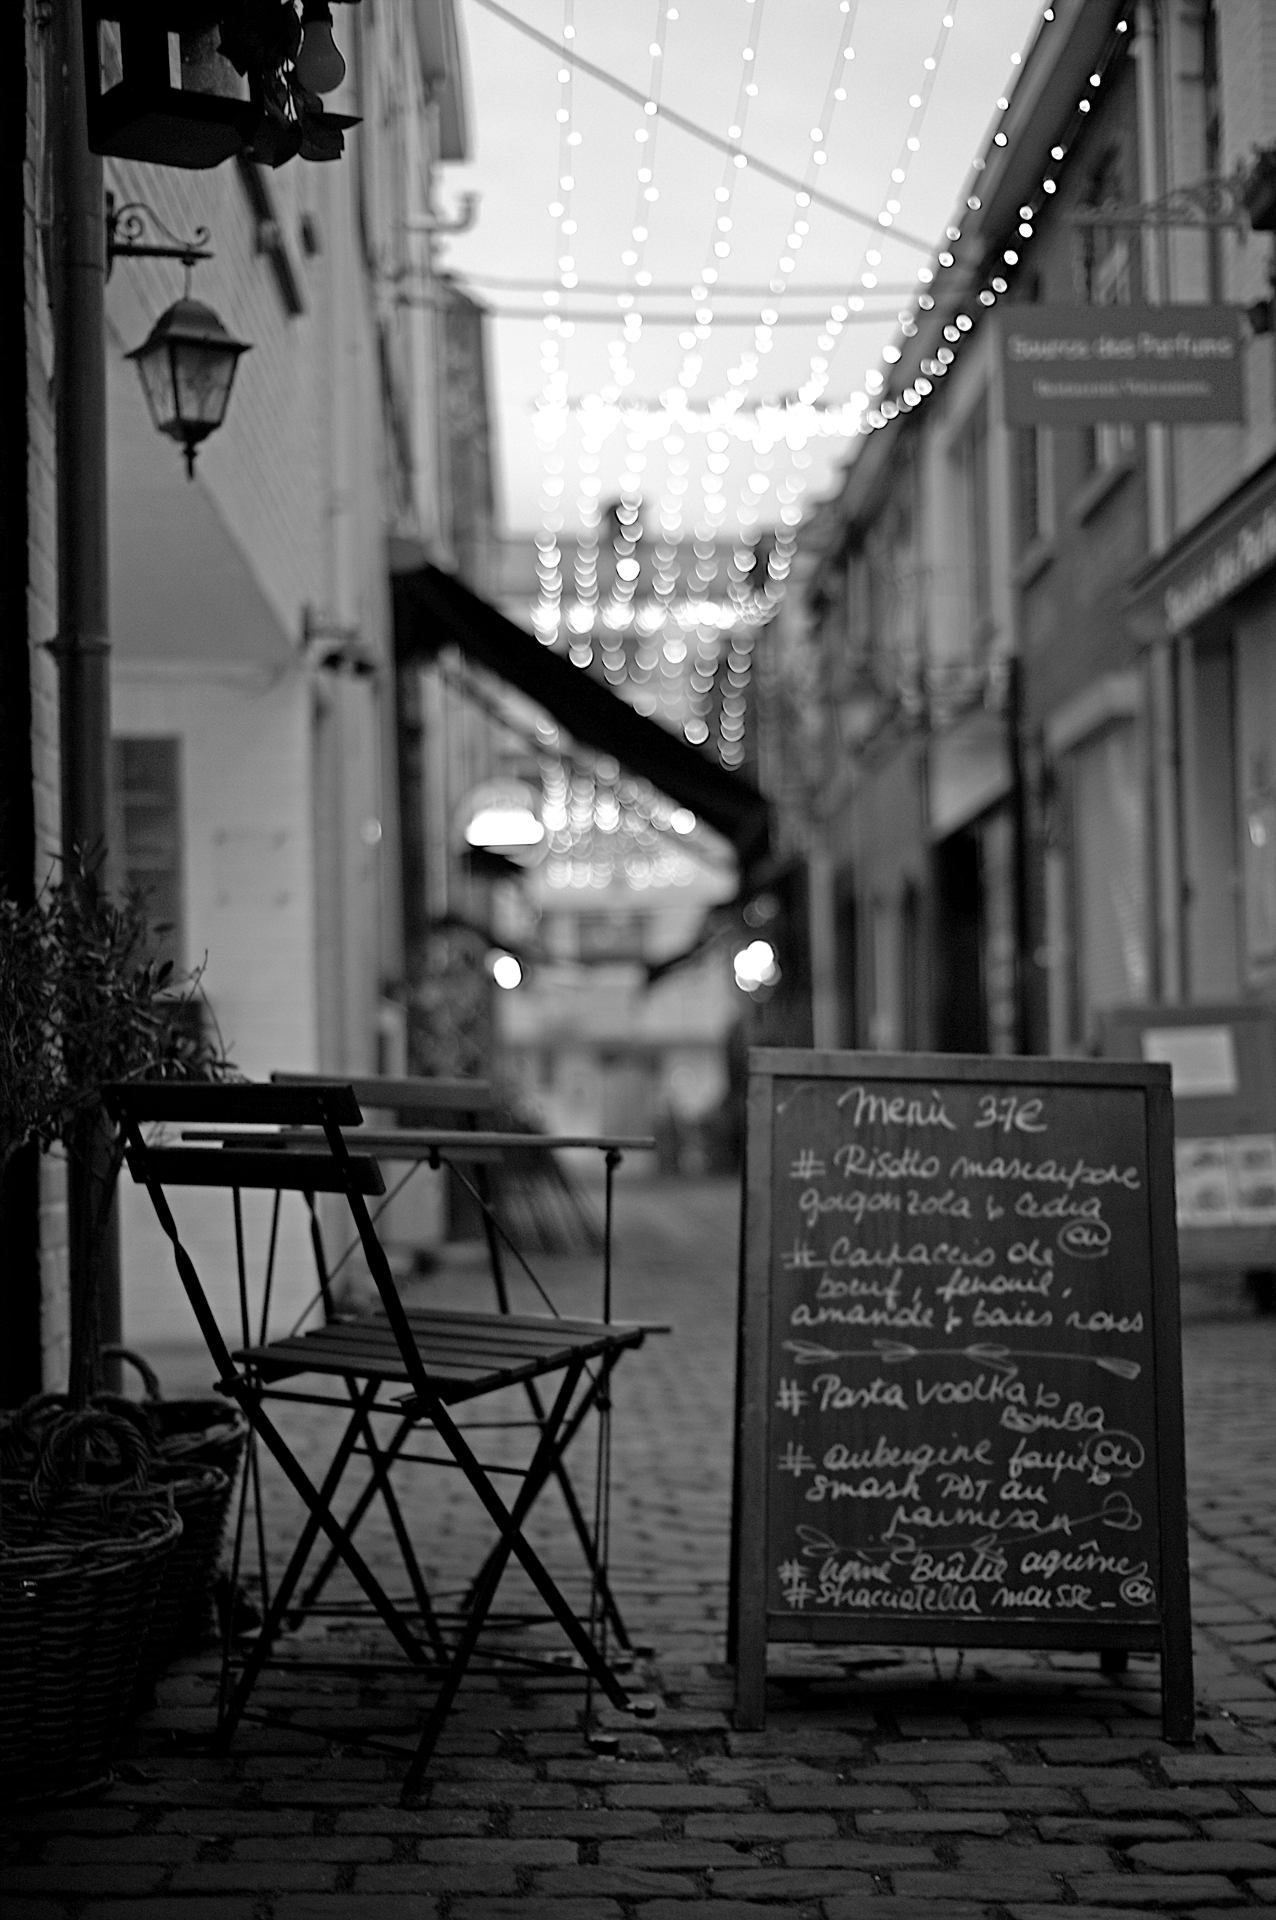 Source des Parfums
Menù 37€
# Risotto mascarpone
gorgonzola &
ou
# Carpaccio de
boeuf, fenouil,
amande & baies roses
# Pasta vodka &
BomBa
# aubergine ou
Smash PDT au
parmesan
# Brûlée agrumes
# Stracciatella mousse - ou